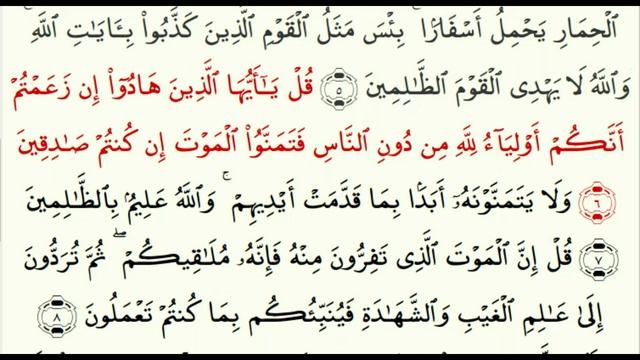 ٱلْحِمَارِ يَحْمِلُ أَسْفَارًۢا ۚ بِئْسَ مَثَلُ ٱلْقَوْمِ ٱلَّذِينَ كَذَّبُوا۟ بِـَٔايَٰتِ ٱللَّهِ ۚ
وَٱللَّهُ لَا يَهْدِى ٱلْقَوْمَ ٱلظَّٰلِمِينَ ٥ قُلْ يَٰٓأَيُّهَا ٱلَّذِينَ هَادُوٓا۟ إِن زَعَمْتُمْ
أَنَّكُمْ أَوْلِيَآءُ لِلَّهِ مِن دُونِ ٱلنَّاسِ فَتَمَنَّوُا۟ ٱلْمَوْتَ إِن كُنتُمْ صَٰدِقِينَ
٦ وَلَا يَتَمَنَّوْنَهُۥٓ أَبَدًۢا بِمَا قَدَّمَتْ أَيْدِيهِمْ ۚ وَٱللَّهُ عَلِيمٌۢ بِٱلظَّٰلِمِينَ
٧ قُلْ إِنَّ ٱلْمَوْتَ ٱلَّذِى تَفِرُّونَ مِنْهُ فَإِنَّهُۥ مُلَٰقِيكُمْ ۖ ثُمَّ تُرَدُّونَ
إِلَىٰ عَٰلِمِ ٱلْغَيْبِ وَٱلشَّهَٰدَةِ فَيُنَبِّئُكُم بِمَا كُنتُمْ تَعْمَلُونَ ٨